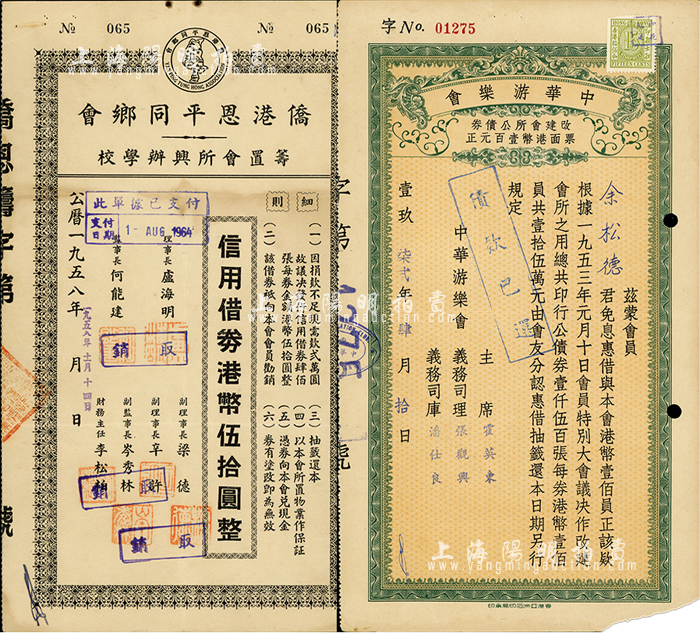 № 065
№ 065
僑港恩平同鄉會
籌置會所興辦學校
細則
（一）因捐款不足現需欵式萬圓
故議决發行信用借券肆佰
張每券金額港幣伍拾圓整
（二）該借券祇向本會會員勸銷
（三）抽籤還本
（四）以本會所置物業作保証
（五）憑券向本會兌現金
（六）券有塗改即為無效
信用借券港幣伍拾圓整
理事長 盧海明
監事長 何能建
副理事長 梁德
副理事長 辛許
副監事長 岑秀林
財務主任 李松柏
公曆一九五八年 月 日
一九五八年十一月十四日
此單據已支付
支付日期
1- AUG 1964
取銷
取銷
取銷
僑恩籌字第
號
字第
號
字 No. 01275
HONG KONG
FIFTEEN CENTS
中華游樂會
改建會所公債券
票面港幣壹百元正
茲蒙會員
余松德 君免息惠借與本會港幣壹佰員正該欵
根據一九五三年元月十日會員特別大會議决作改建
會所之用總共印行公債券壹仟伍百張每券港幣壹佰
員共壹拾伍萬元由會友分認惠借抽籤還本日期另行
規定
中華游樂會
主席 霍英東
義務司理 張觀興
義務司庫 潘仕良
壹玖柒弍年肆月拾日
債欵已還
上海陽明拍賣
www.yangmingauction.com
上海陽明拍賣
上海陽明拍賣
www.yangmingauction.com